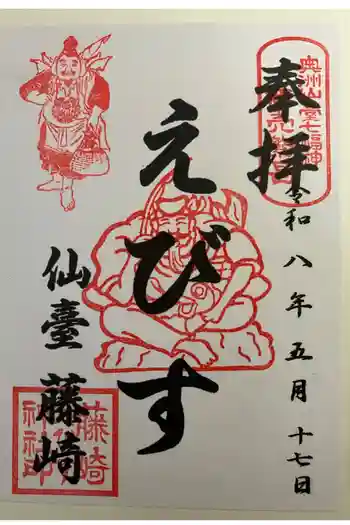 奉拝
令和八年五月十七日
えびす
仙臺 藤崎
奥州仙臺七福神
藤崎
神社印